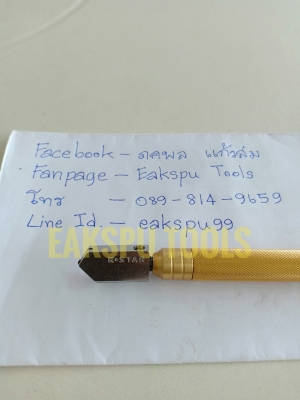 Facebook - ดคพล แก้วสม
Fanpage - Eakspu Tools
โทร - 089-814-9659
Line Id. - eakspu99
EAKSPU TOOLS
K-STAR